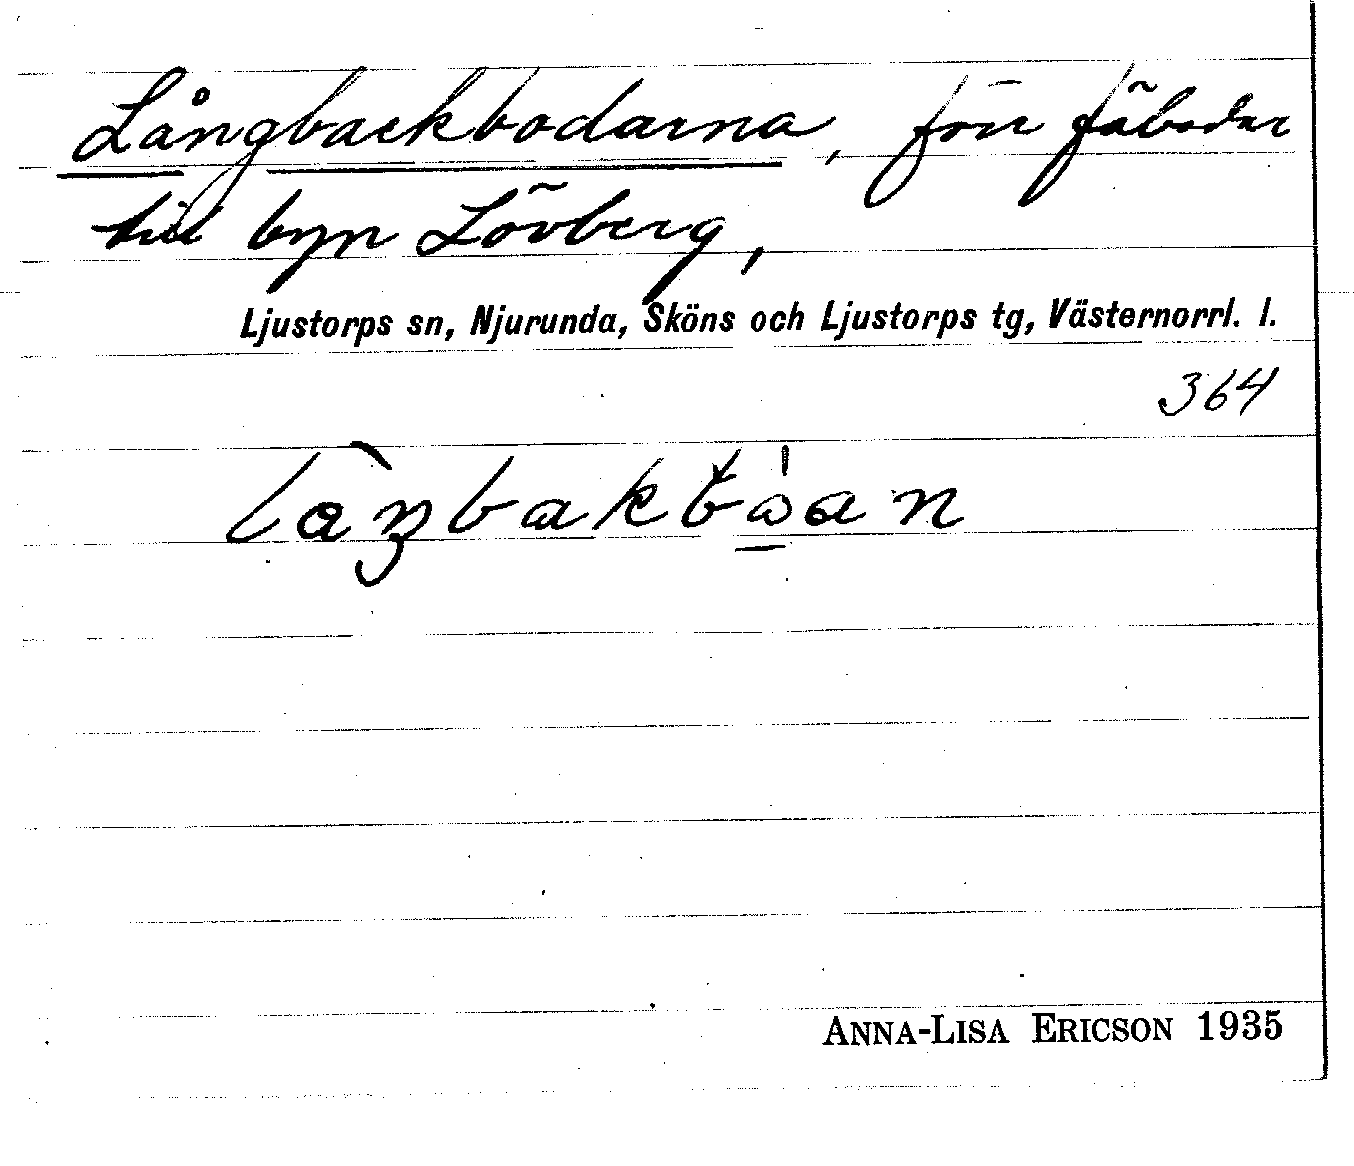 Långbackbodarna, förr fäbodar
till byn Lövberg,
Ljustorps sn, Njurunda, Sköns och Ljustorps tg, Västernorrl. l.
364
ANNA-LISA ERICSON 1935